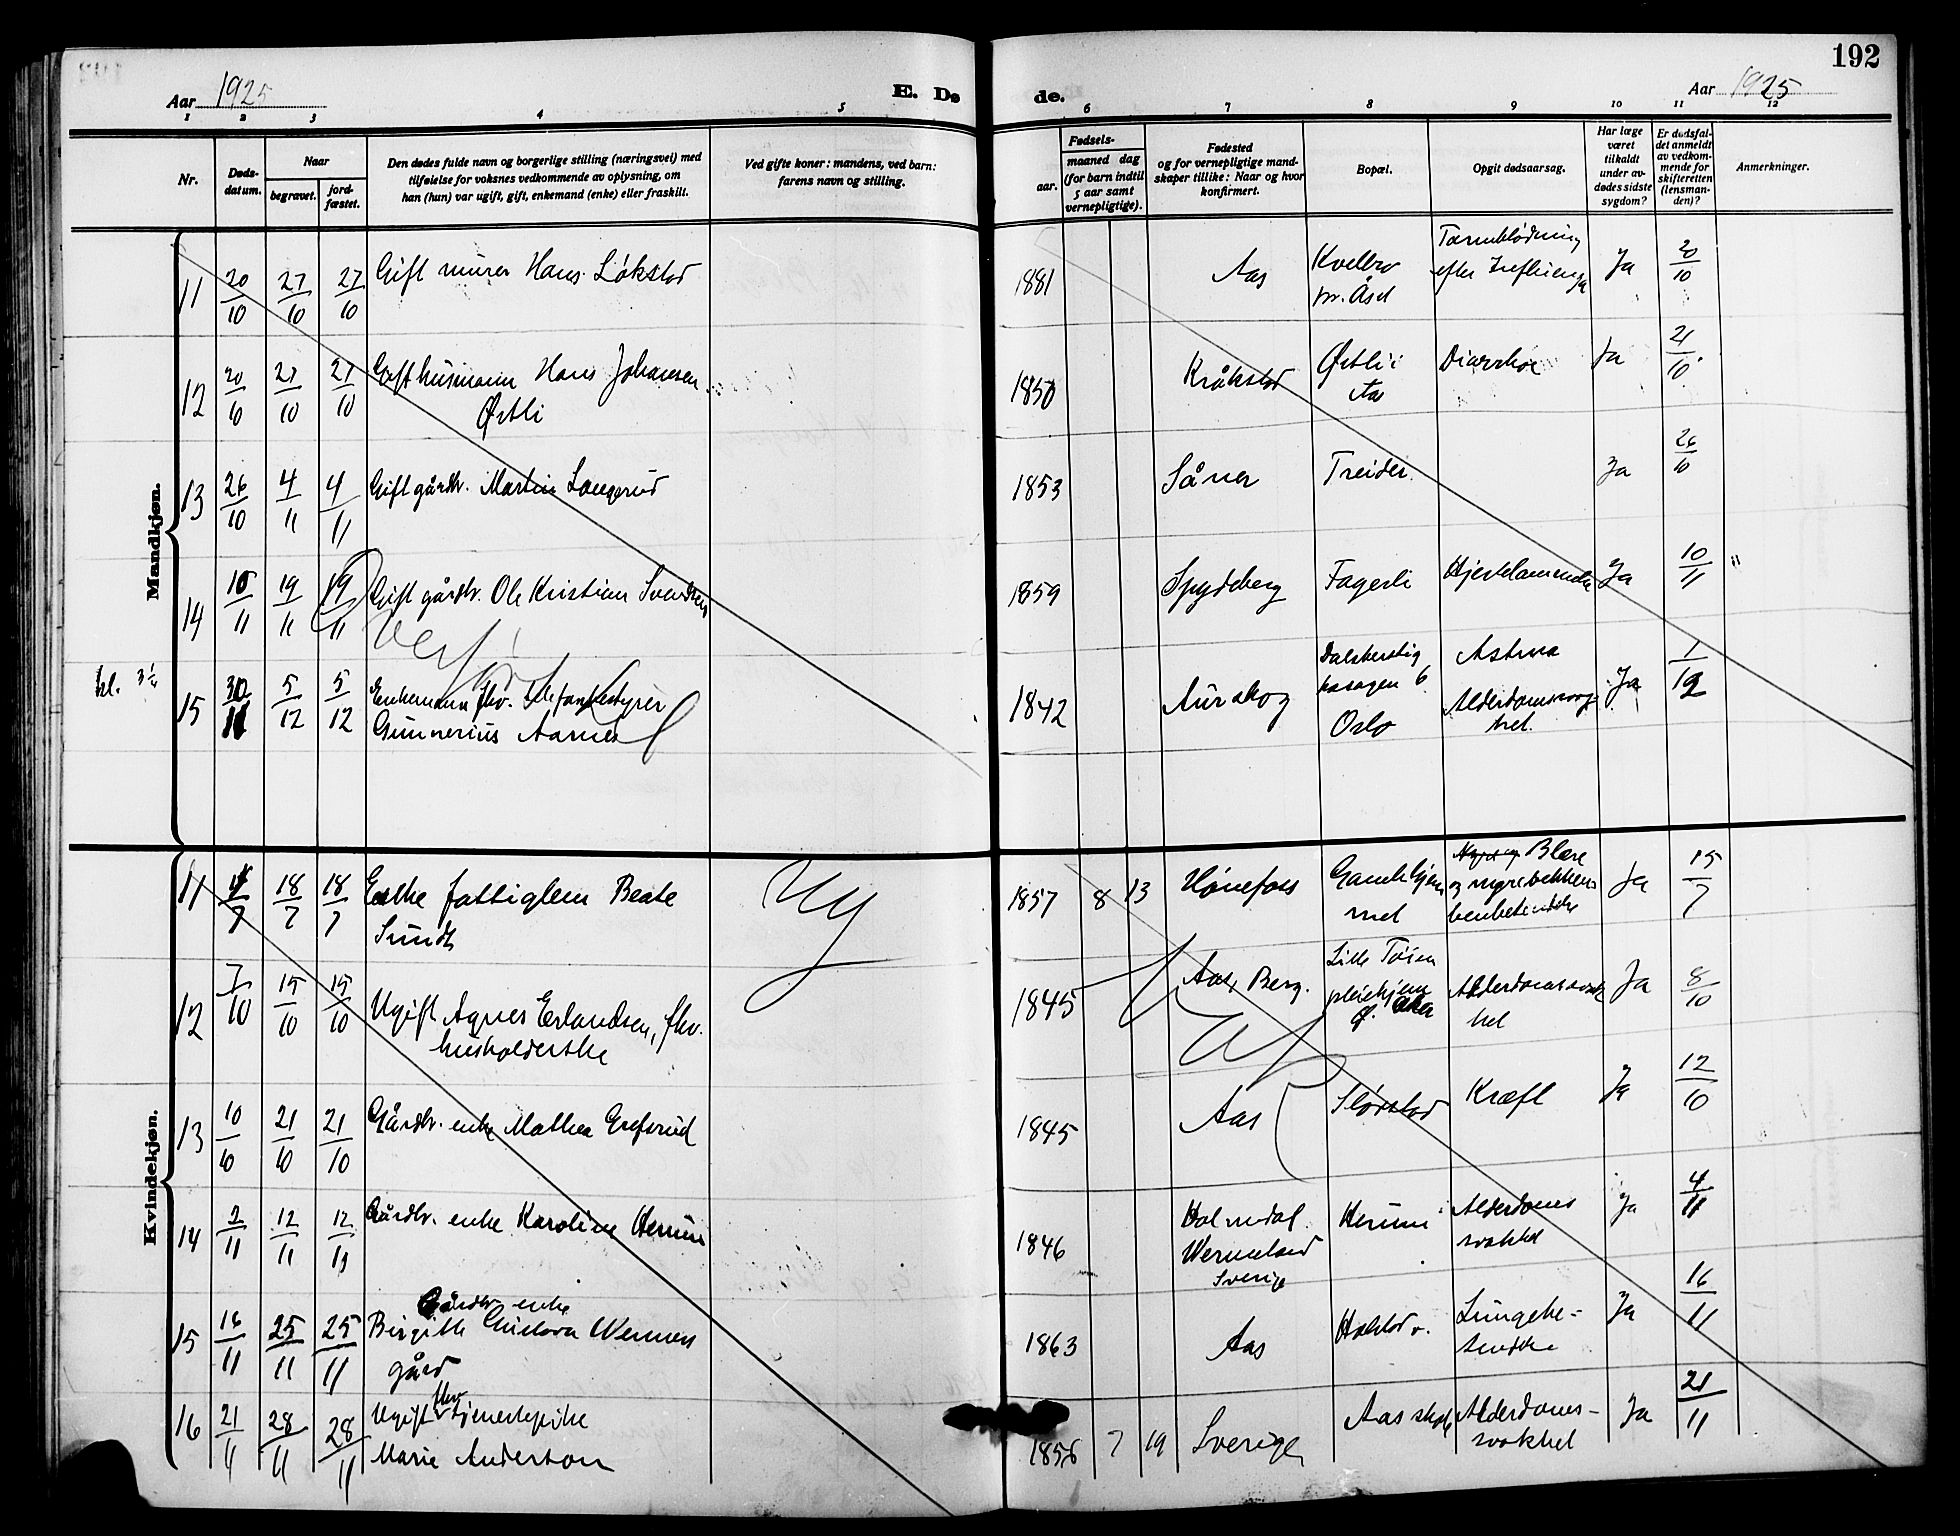 192
Aar 1925
E. Dø
de.
Aar 1925
1 2 3 4 5 6 7 8 9 10 11 12
Nr.
Døds-
datum.
Naar
begravet.
jord-
fæstet.
Den dødes fulde navn og borgerlige stilling (næringsvei) med
tilføielse for voksnes vedkommende av oplysning, om
han (hun) var ugift, gift, enkemand (enke) eller fraskilt.
Ved gifte koner: mandens, ved barn:
farens navn og stilling.
Fødsels-
aar.
maaned dag
(for barn indtil
5 aar samt
vernepligtige).
Fødested
og for vernepligtige mand-
skaper tillike: Naar og hvor
konfirmert.
Bopæl.
Opgit dødsaarsag.
Har læge
været
tilkaldt
under av-
dødes sidste
sygdom?
Er dødsfal-
det anmeldt
av vedkom-
mende for
skifteretten
(lensman-
den)?
Anmerkninger.
Mandkjøn.
11 20/10 27/10 27/10 Gift murer Hans Løkstad 1881 Aas Kvelbo Tarmblødning
efter Ja 20/10
12 20/10 27/10 Gift husmann Hans Johansen
Østli 1850 Kråkstad Østli i
Aas Diarrhoe Ja 21/10
13 26/10 4/11 4/11 Gift gårdbr. Martin Langerud 1853 Såner Treider Ja 26/10
14 10/11 19/11 19/11 Gift gårdbr. Ole Kristian Svendsen 1859 Spydeberg Fagerli Hjertelammelse Ja 10/11 "
kl. 3¼ 15 30/11 5/12 5/12 Enkemann fhv.
Gunnerius Aarnes 1842 Aurskog
Oslo Astma
Alderdomssvag-
het. Ja 1/12
Kvindekjøn.
11 18/7 18/7 Enke fattiglem Beate
Sundt 1857 8 13 Hønefoss Gamlehjem-
met Blære
og nyrebekken-
benbetendelse Ja 15/7
12 7/10 15/10 15/10 Ugift Agnes Erlandsen, fhv.
husholderske 1845 Aas, Berg. Lille Tøien
pleiehjem
Ø. Aker Alderdomssvak-
het Ja 8/10
13 10/10 21/10 21/10 Gårdbr. enke Mathea Grefsrud 1845 Aas Kræft Ja 12/10
14 2/11 12/11 12/11 Gårdbr. enke Karoline Herum 1846
Wermeland
Sverige Herum Alderdoms
svakhet Ja 4/11
15 16/11 25/11 25/11 Gårdbr. enke
Birgitte Gustava Wermes
gård 1863 Aas Holstad v. Lungebe-
tendelse Ja 16/11
16 21/11 28/11 28/11 Ugift fhv. tjenestepike
Marie Anderson 1856 7 19 Sverige Aas skole Alderdoms-
svakhet Ja 21/11